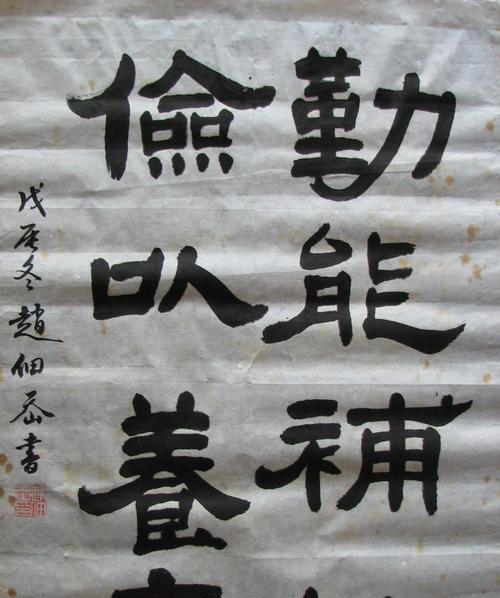 勤能補
儉以養
戊辰冬趙佃岙書